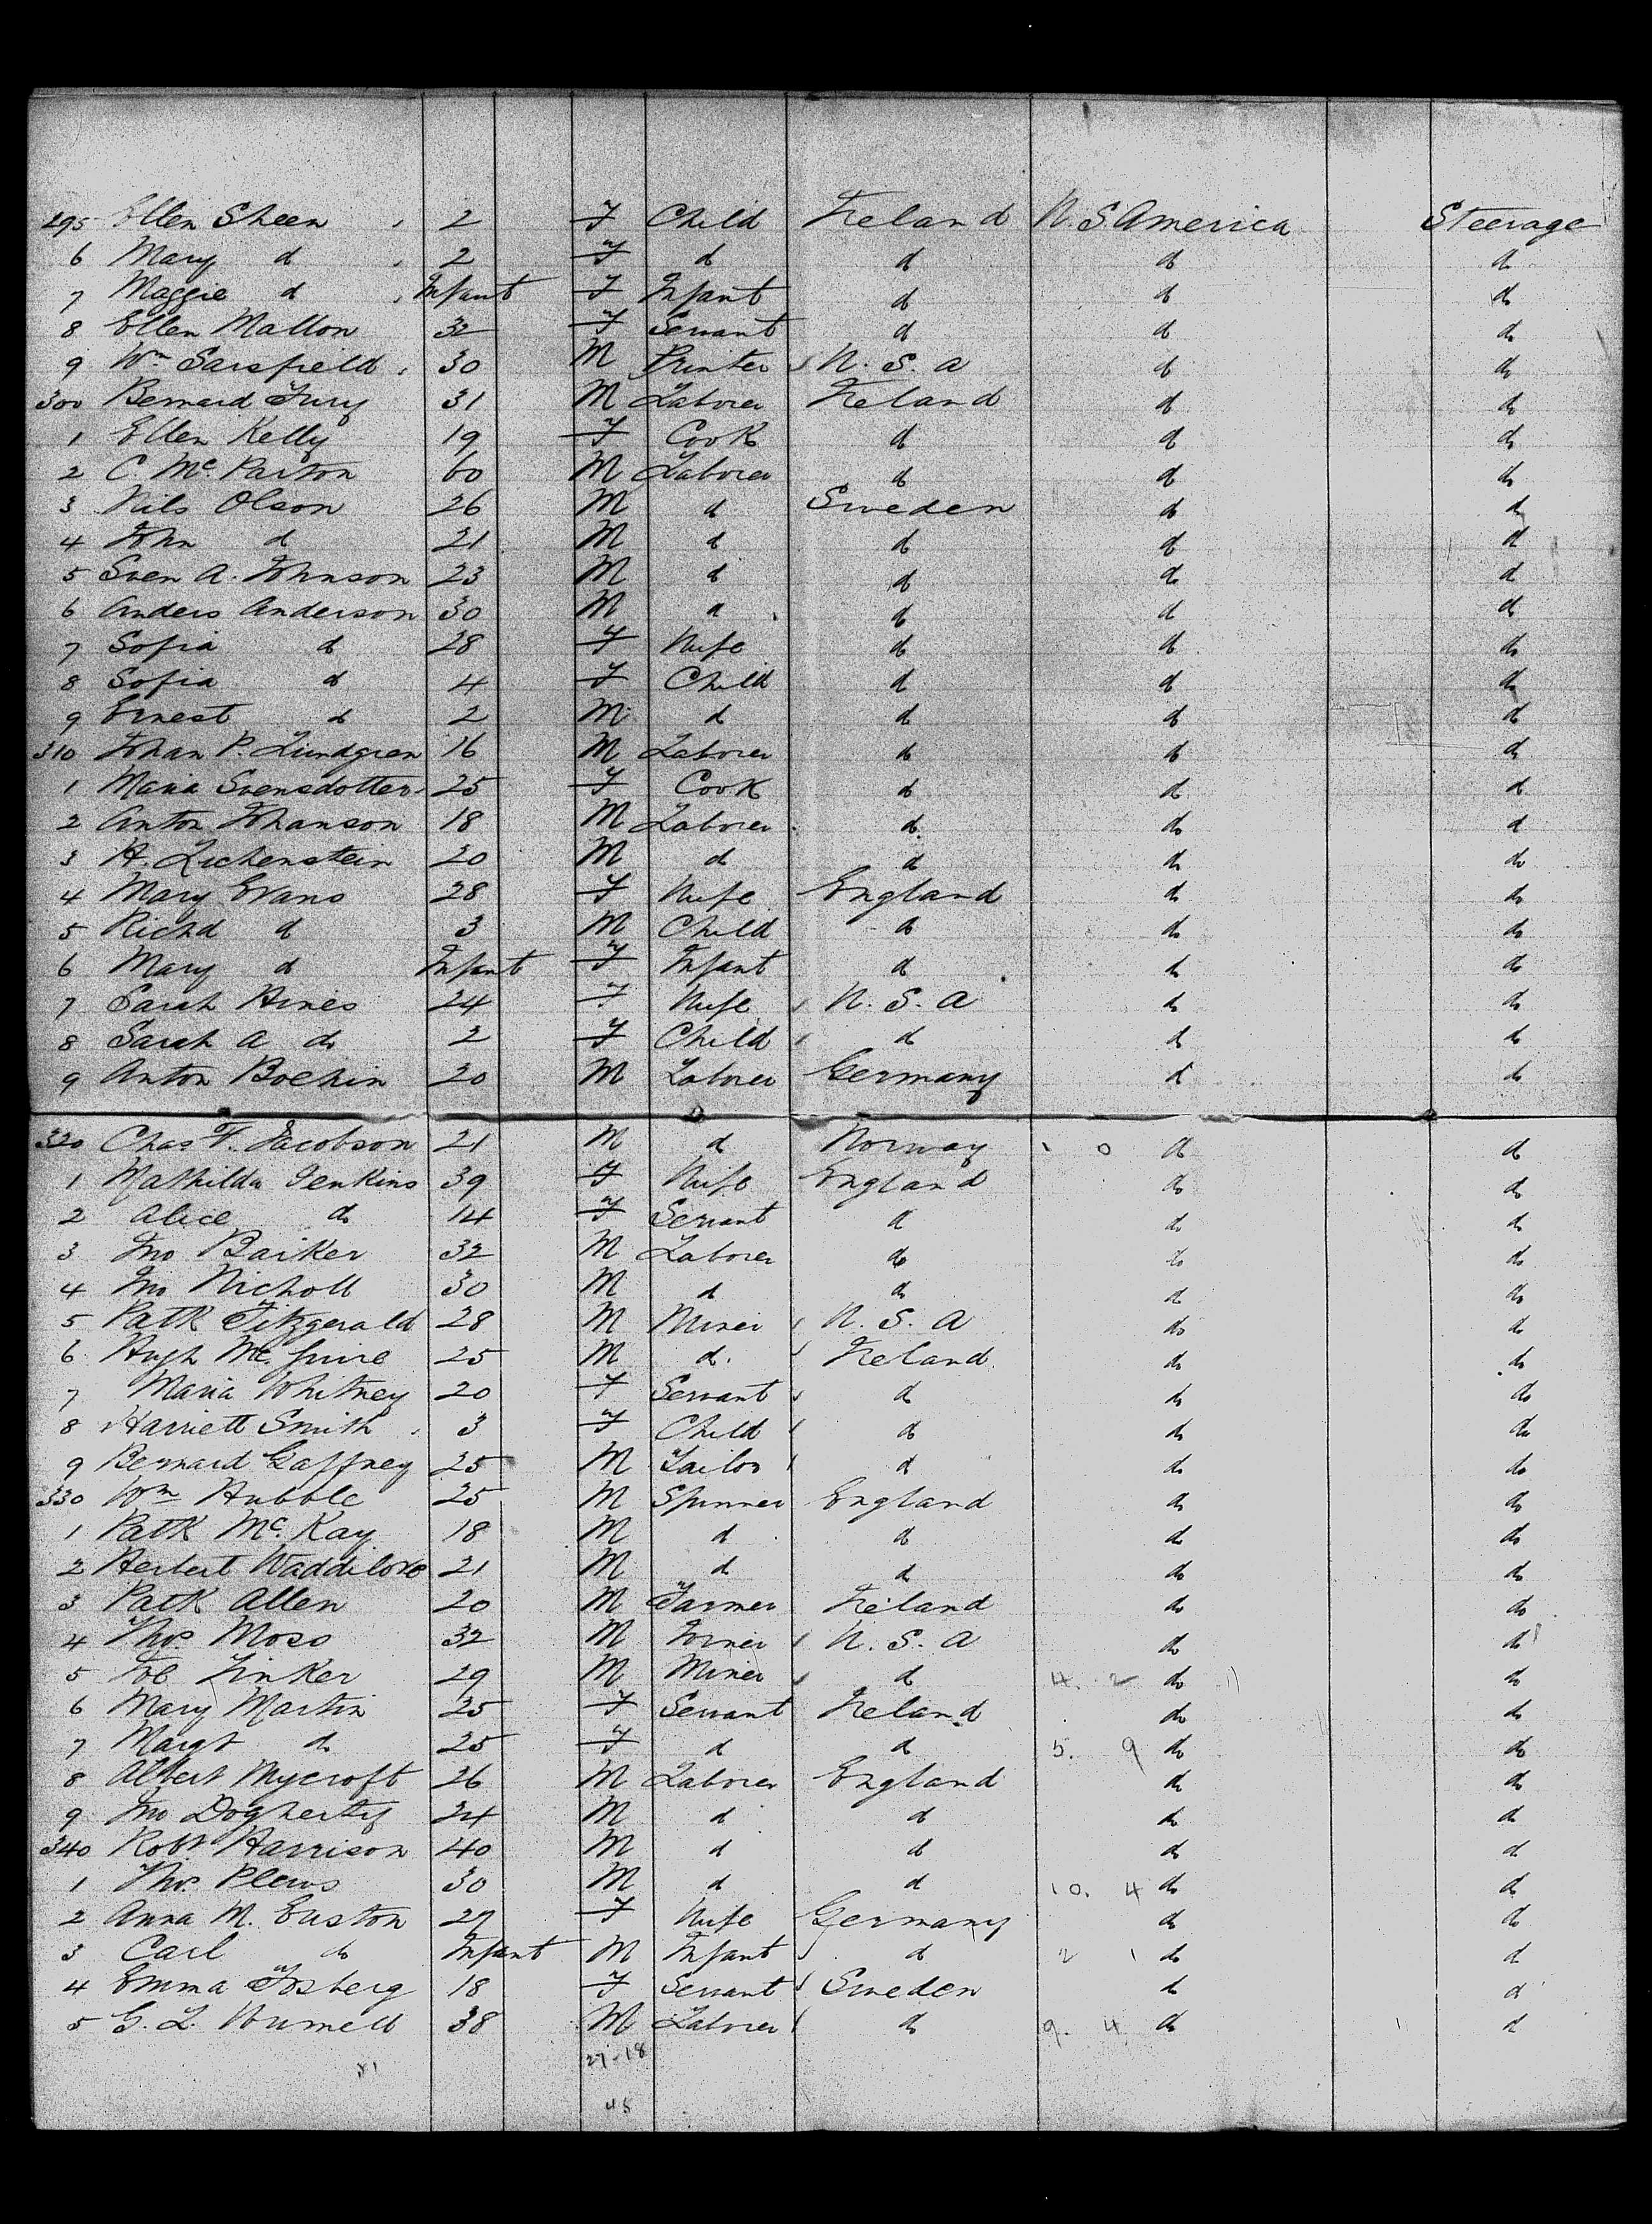 295 Ellen Sheen 2 F Child Ireland U. S. America Steerage
6 Mary d 2 F d d d d
7 Maggie d Infant F Infant d d d
8 Ellen Mallon 32 F Servant d d d
9 Wm Sarsfield 30 M Printer U. S. A d d
300 Bernard Fury 31 M Laborer Ireland d d
1 Ellen Kelly 19 F Cook d d d
2 C. Mc. Parton 60 M Laborer d d d
3 Nils Olson 26 M d Sweden d d
4 John d 21 M d d d d
5 Sven A. Johnson 23 M d d d d
6 Anders Anderson 30 M d d d d
7 Sofia d 28 F Wife d d d
8 Sofia d 4 F Child d d d
9 Ernest d 2 M d d d d
310 Johan P. Lundgren 16 M Laborer d d d
1 Maria Svensdotter 25 F Cook d d d
2 Anton Johanson 18 M Laborer d do d
3 H. Lichenstein 20 M d d do do
4 Mary Evans 28 F Wife England d do
5 Richd d 3 M Child d do do
6 Mary d Infant F Infant d do do
7 Sarah Hines 24 F Wife U. S. A do do
8 Sarah A do 2 F Child d d do
9 Anton 20 M Laborer Germany d do
320 Chas F. Jacobson 21 M d Norway 0 d d
1 Mathilda Jenkins 39 F Wife England do do
2 Alice do 14 F Servant d do do
3 Jno Barker 32 M Laborer do do do
4 Jno Nicholl 30 M d d d do
5 Patk Fitzgerald 28 M Miner U. S. A do do
6 Hugh Mc. Guire 25 M d. Ireland do do
7 Maria Whitney 20 F Servant d do do
8 Harriett Smith 3 F Child d do do
9 Bernard Gaffney 25 M Tailor d do do
330 Wm Hubble 25 M Spinner England do do
1 Patk Mc. Kay 18 M d d do do
2 Herbert Waddilove 21 M d d do do
3 Patk Allen 20 M Farmer Ireland do do
4 Thos. Moss 32 M U. S. A do do
5 Job Tinker 29 M Miner d 4. 2 do do
6 Mary Martin 25 F Servant Ireland do do
7 Margt do 25 F d d 5. 9 do do
8 Albert Mycroft 26 M Laborer England do do
9 Jno Dogherty 24 M d d do d
340 Robt Harrison 40 M d d d d
1 Thos. Plews 30 M d d 10. 4 do d
2 Anna M. Euston 27 F Wife Germany do do
3 Carl do Infant M Infant d 2 1 do d
4 Emma Fosberg 18 F Servant Sweden do d
5 G. L. 38 M Laborer do 9. 4 do d
27-18
45